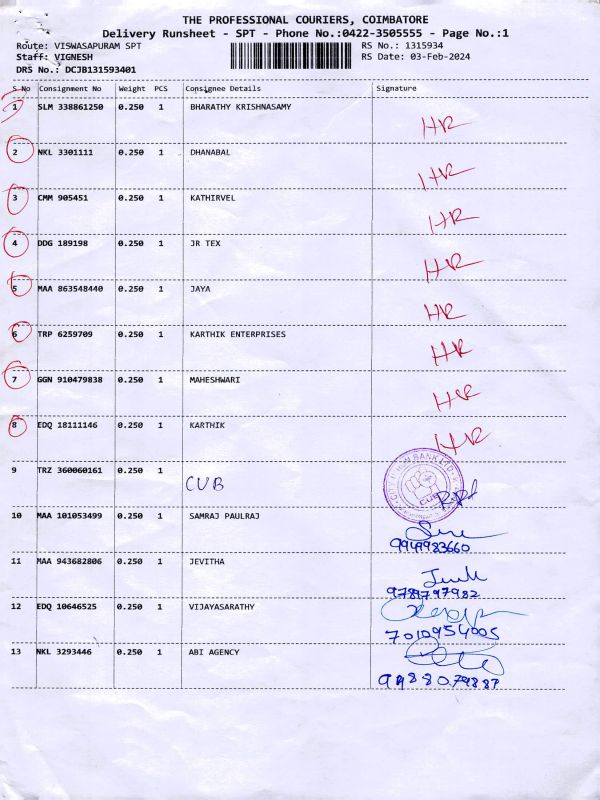 THE PROFESSIONAL COURIERS, COIMBATORE
Delivery Runsheet - SPT - Phone No.:0422-3505555 - Page No.:1
Route: VISWASAPURAM SPT RS No.: 1315934
Staff: VIGNESH RS Date: 03-Feb-2024
DRS No.: DCJB131593401
S No Consignment No Weight PCS Consignee Details Signature
1 SLM 338861250 0.250 1 BHARATHY KRISHNASAMY HR
2 NKL 3301111 0.250 1 DHANABAL HR
3 CMM 905451 0.250 1 KATHIRVEL HR
4 DDG 189198 0.250 1 JR TEX HR
5 MAA 863548440 0.250 1 JAYA HR
6 TRP 6259709 0.250 1 KARTHIK ENTERPRISES HR
7 GGN 910479838 0.250 1 MAHESHWARI HR
8 EDQ 18111146 0.250 1 KARTHIK HR
9 TRZ 360060161 0.250 1 CUB
CUB
10 MAA 101053499 0.250 1 SAMRAJ PAULRAJ
9949983660
11 MAA 943682806 0.250 1 JEVITHA
9789797982
12 EDQ 10646525 0.250 1 VIJAYASARATHY
7010954005
13 NKL 3293446 0.250 1 ABI AGENCY